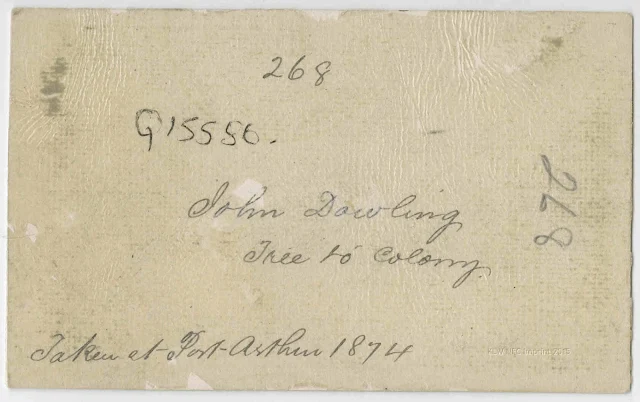 268
G15556.
John Dowling
Free to Colony
Taken at Port Arthur 1874
278